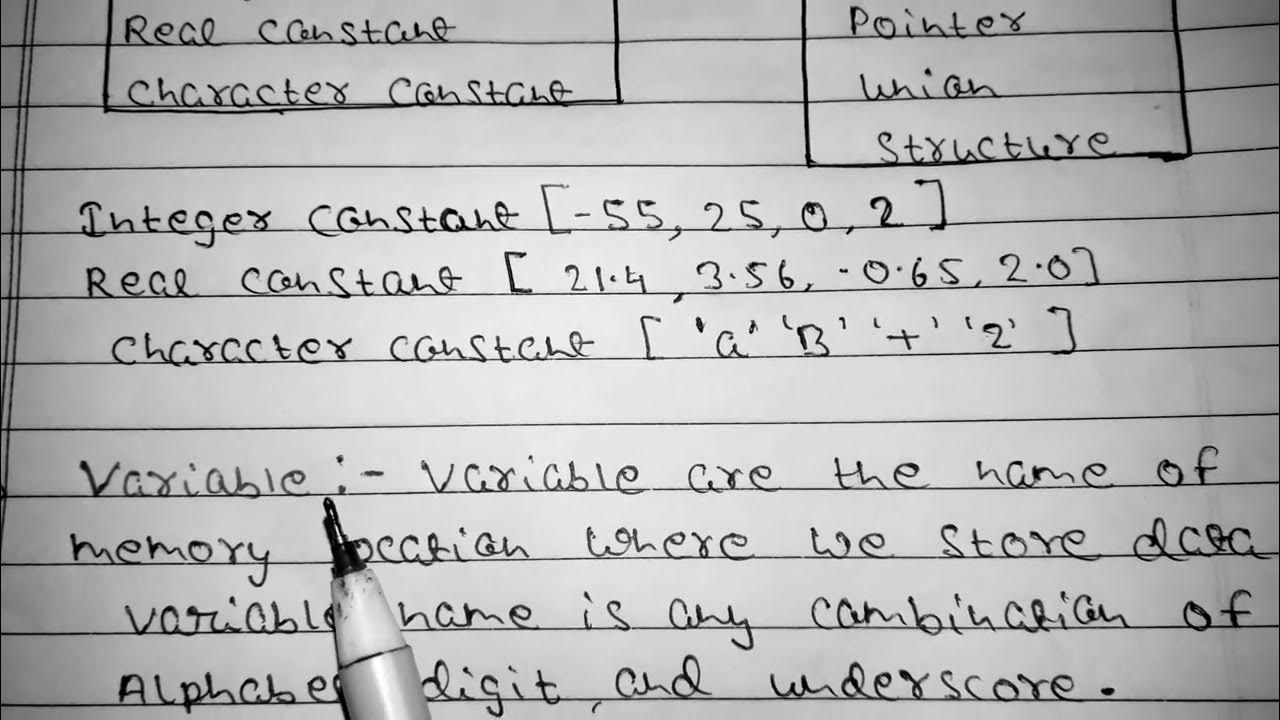 Real constant
Character constant
Pointer
Union
Structure
Integer constant [-55, 25, 0, 2]
Real constant [ 21.4, 3.56, -0.65, 2.0]
Character constant [ 'a' 'B' '+' '2' ]
Variable :- Variable are the name of
memory location where we store data
variable name is any combination of
Alphabet digit, and underscore.